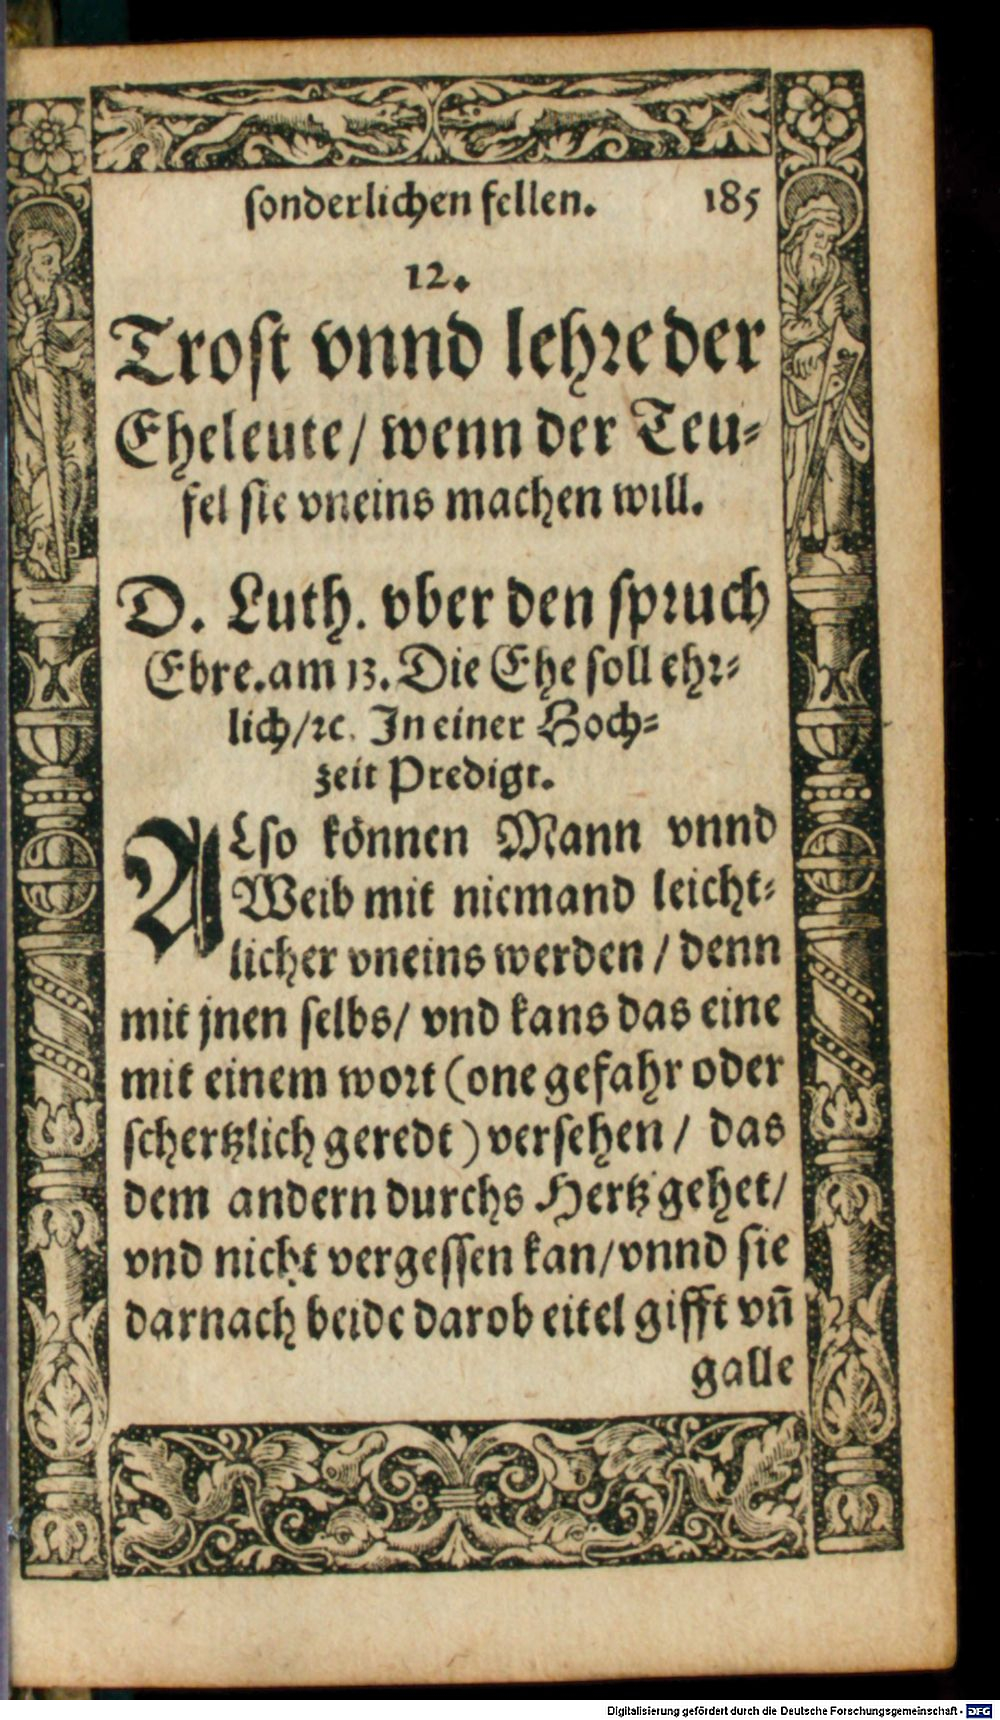 sonderlichen fellen. 185
12.
Trost vnnd lehre der
Eheleute/ wenn der Teu-
fel sie vneins machen will.
D. Luth. vber den spruch
Ebre. am 13. Die Ehe soll ehr-
lich/ꝛc. In einer Hoch-
zeit Predigt.
ALso können Mann vnnd
Weib mit niemand leicht-
licher vneins werden / denn
mit jnen selbs/ vnd kans das eine
mit einem wort (one gefahr oder
schertzlich geredt) versehen / das
dem andern durchs Hertz gehet/
vnd nicht vergessen kan/vnnd sie
darnach beide darob eitel gifft vñ
galle
Digitalisierung gefördert durch die Deutsche Forschungsgemeinschaft - DFG